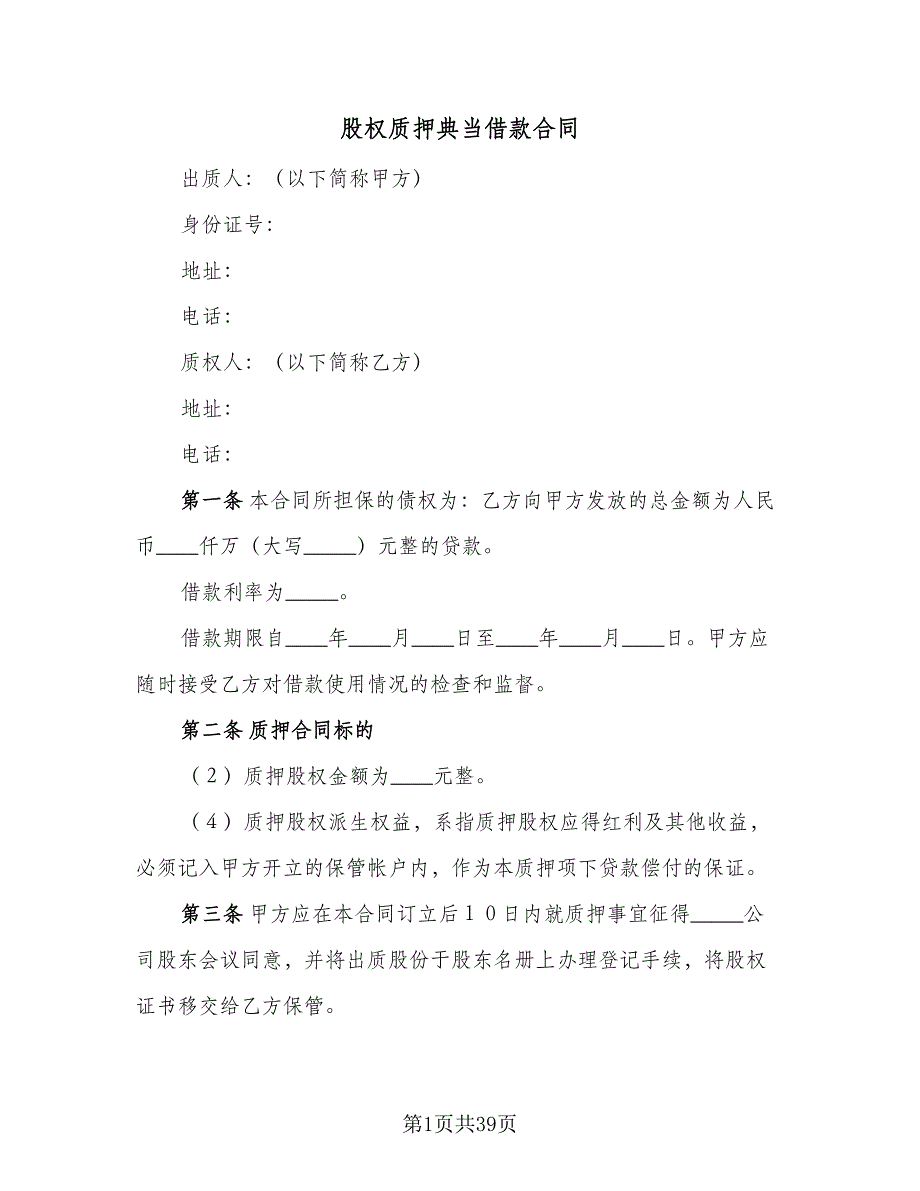 股权质押典当借款合同
出质人：（以下简称甲方）
身份证号：
地址：
电话：
质权人：（以下简称乙方）
地址：
电话：
第一条 本合同所担保的债权为：乙方向甲方发放的总金额为人民
币____仟万（大写_____）元整的贷款。
借款利率为_____。
借款期限自____年____月____日至____年____月____日。甲方应
随时接受乙方对借款使用情况的检查和监督。
第二条 质押合同标的
（２）质押股权金额为____元整。
（４）质押股权派生权益，系指质押股权应得红利及其他收益，
必须记入甲方开立的保管帐户内，作为本质押项下贷款偿付的保证。
第三条 甲方应在本合同订立后１０日内就质押事宜征得_____公
司股东会议同意，并将出质股份于股东名册上办理登记手续，将股权
证书移交给乙方保管。
第1页共39页